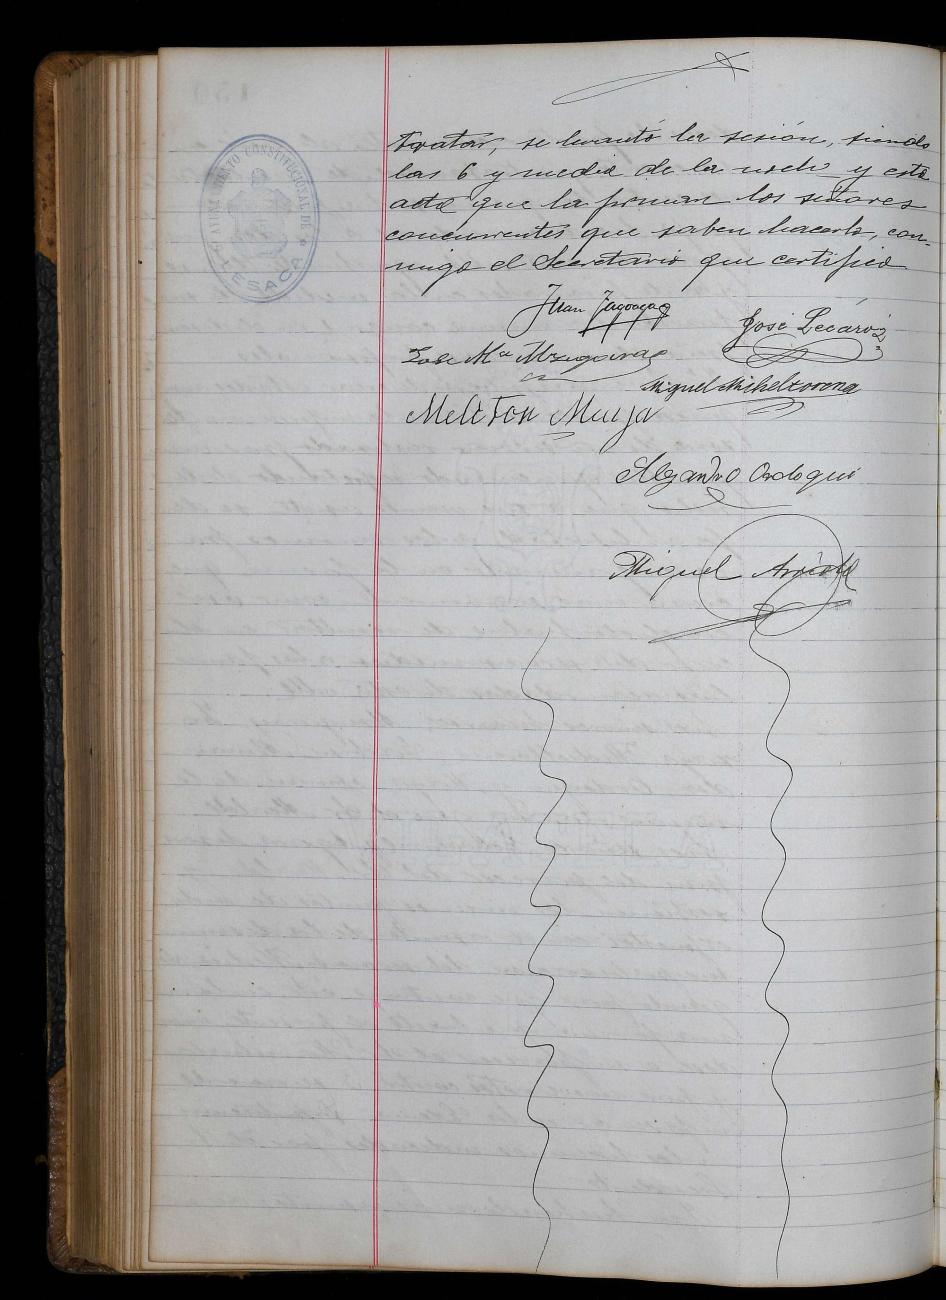 AYUNTAMIENTO CONSTITUCIONAL DE
LESACA
tratar, se levantó la sesión, siendo
las 6 y media de la noche y esta
acta que la firman los señores
concurrentes que saben hacerlo, con-
migo el Secretario que certifico
Juan
José Lecároz
José Mª
Miguel Micheltorena
Meliton Muija
Alejandro Ordoqui
Miguel